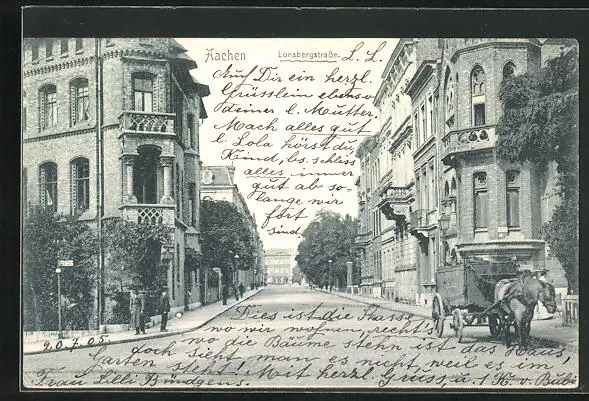 Aachen
Lonsbergstraße.
L. L.
Auf Dir ein herzl.
Grüsslein ebenso
deiner l. Mutter.
Mach alles gut
l. Lola hörst du
Kind, bs. schliss
alles immer
gut ab so-
lange wir
fort
sind
Dies ist die Strasse
wo wir wohnen, rechts
20.7.05. wo die Bäume stehn ist das Haus,
doch sieht man es nicht, weil es im
Garten steht! Mit herzl. Gruss, u. 1 K. v. Bubi
Frau Lilli Bündgens.